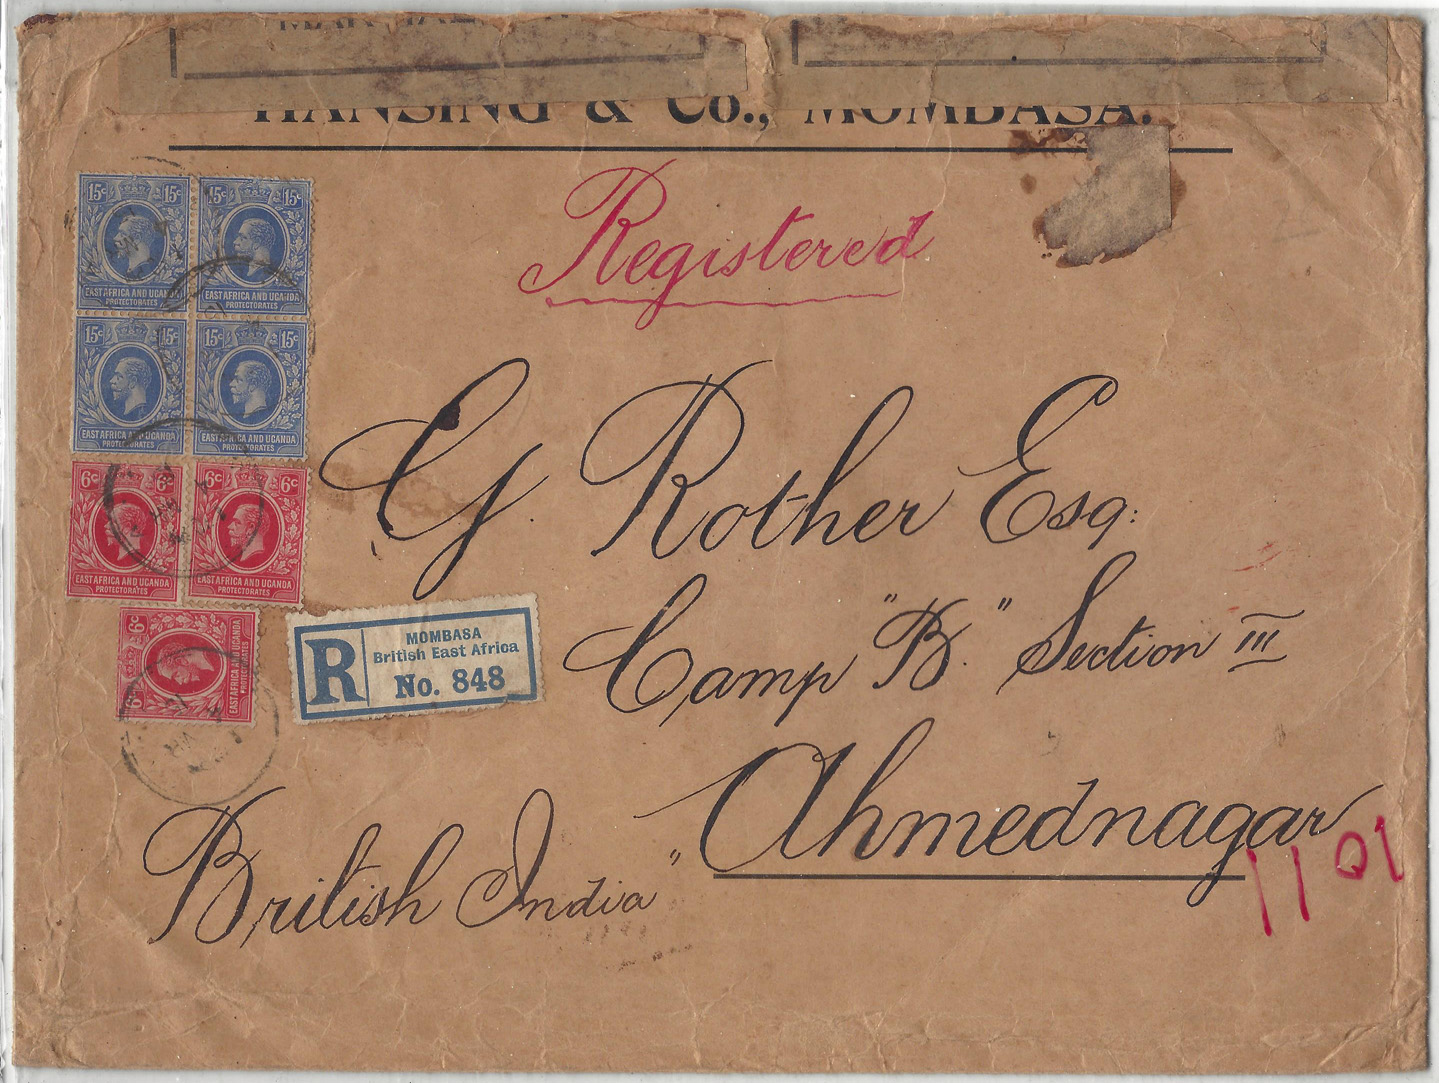 HANSING & Co., MOMBASA.
Registered
15c 15c 15c 15c
EAST AFRICA AND UGANDA EAST AFRICA AND UGANDA
PROTECTORATES PROTECTORATES
15c 15c 15c 15c
EAST AFRICA AND UGANDA EAST AFRICA AND UGANDA
PROTECTORATES PROTECTORATES
6c 6c 6c 6c
EAST AFRICA AND UGANDA EAST AFRICA AND UGANDA
PROTECTORATES PROTECTORATES
6c 6c
EAST AFRICA AND UGANDA
PROTECTORATES
R
MOMBASA
British East Africa
No. 848
G. Rother Esq:
Camp "B." Section III
Ahmednagar
British India "